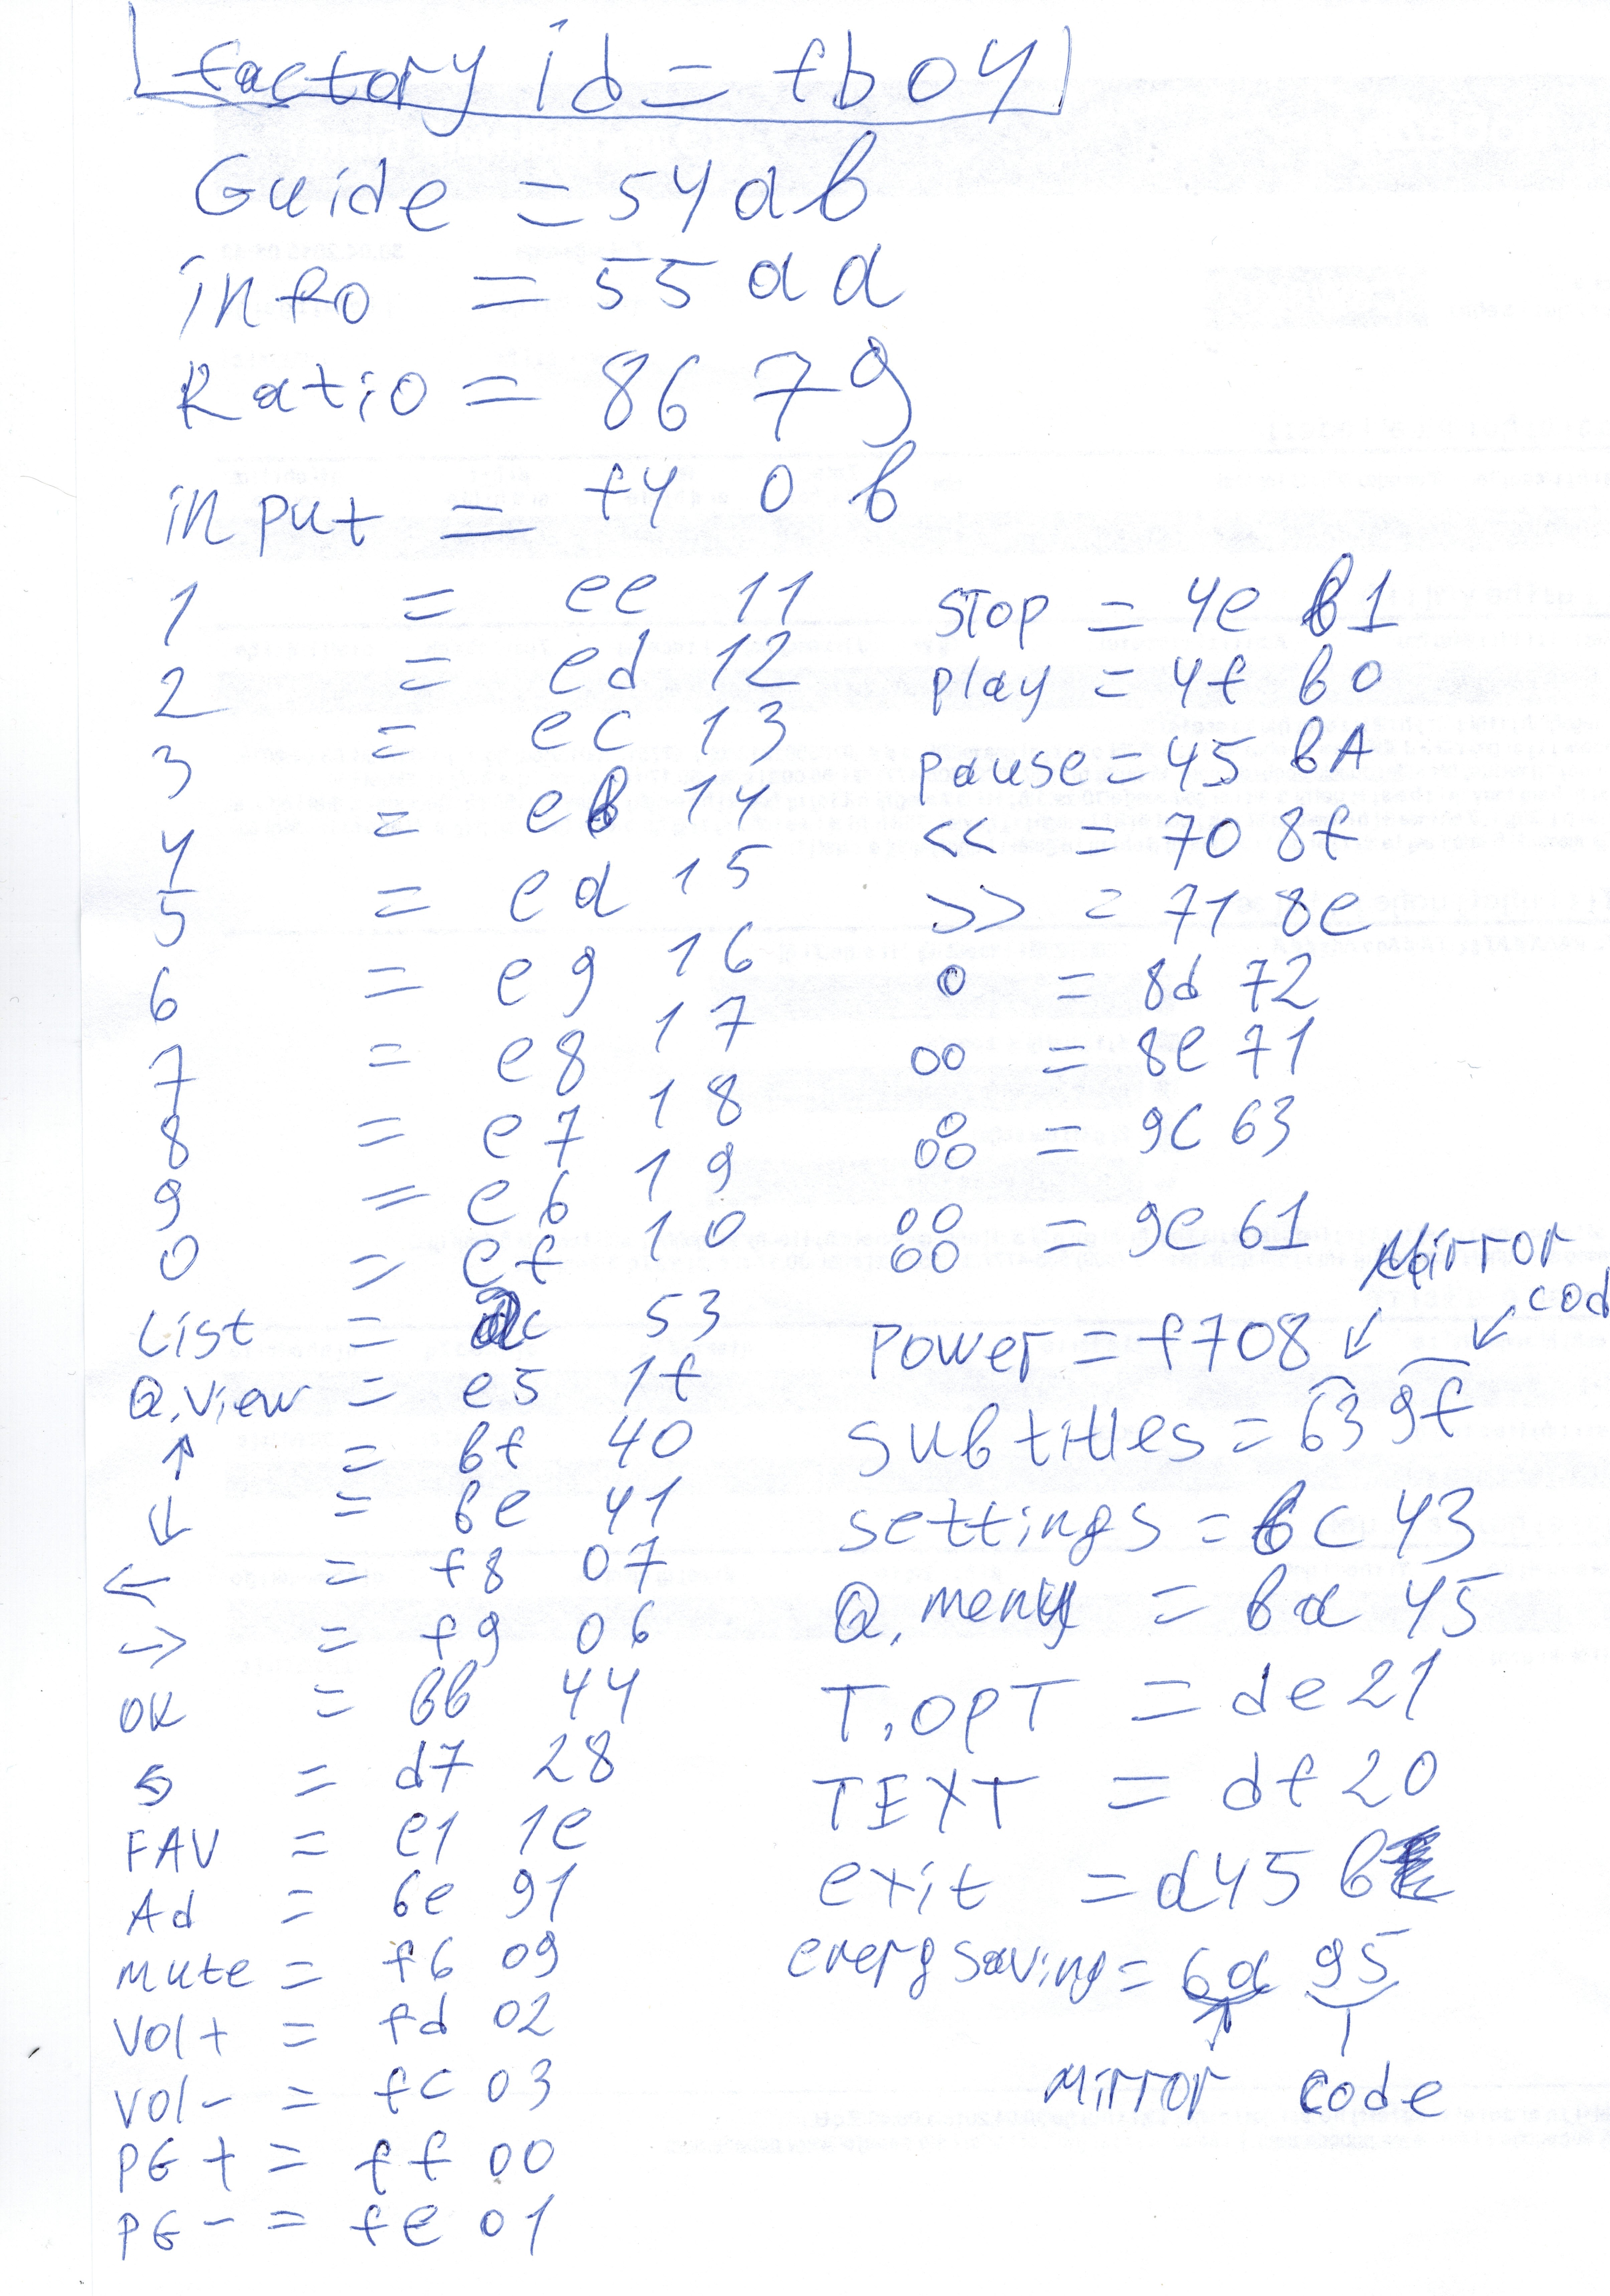 factory id = fb04
Guide = 54 ab
info = 55 aa
Ratio = 86 79
input = f4 0b
1 = ee 11
2 = ed 12
3 = ec 13
4 = eb 14
5 = ea 15
6 = e9 16
7 = e8 17
8 = e7 18
9 = e6 19
0 = ef 10
List = ac 53
Q.view = e5 1f
↑ = bf 40
↓ = be 41
← = f8 07
→ = f9 06
OK = bb 44
= d7 28
FAV = e1 1e
Ad = 6e 91
mute = f6 09
Vol+ = fd 02
Vol- = fc 03
PG + = ff 00
PG - = fe 01
STOP = 4e b1
play = 4f b0
pause = 45 bA
<< = 70 8f
>> = 71 8e
o = 8d 72
oo = 8e 71
o
oo = 9c 63
oo
oo = 9e 61
Mirror
cod
Power = f708
subtitles = 63 9f
settings = bc 43
Q. menu = ba 45
T.OPT = de 21
TEXT = df 20
exit = a45b
energ saving = 6a 95
Mirror code